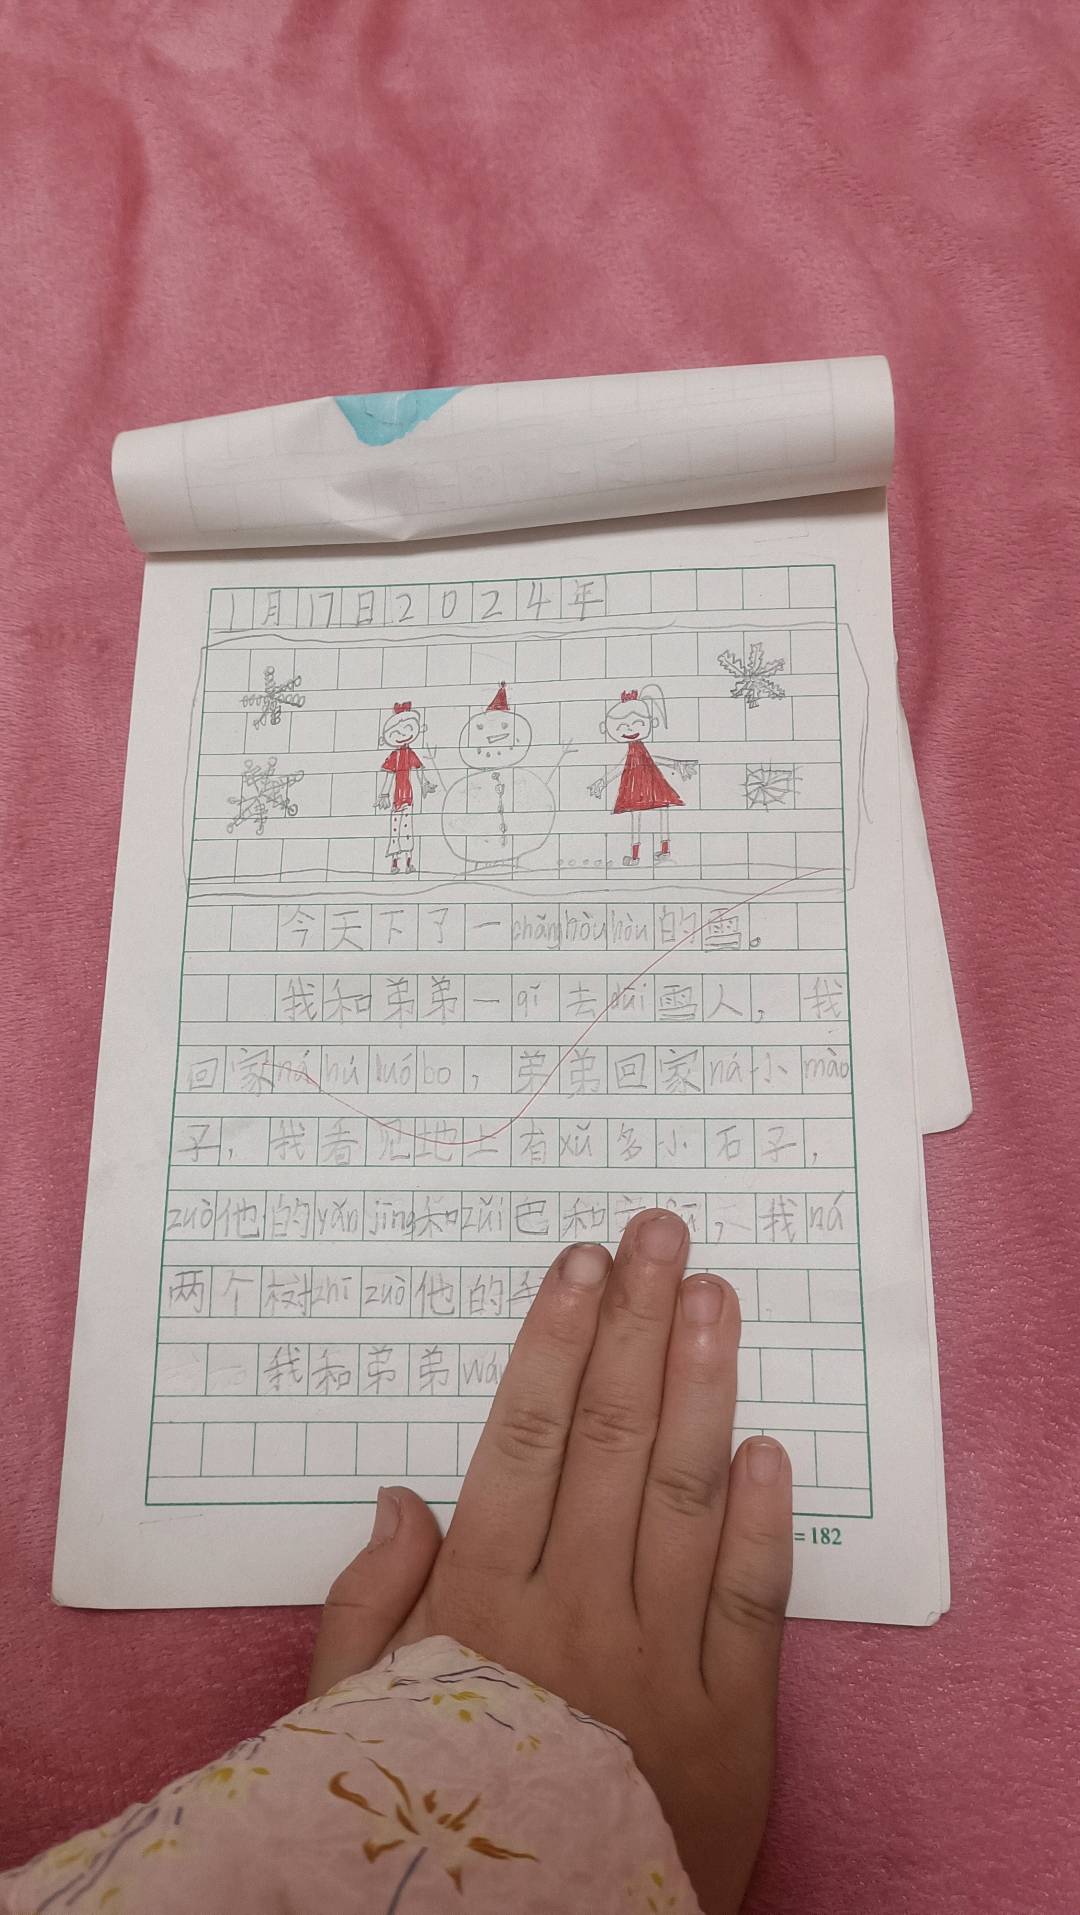 1月17日2024年
今天下了一chǎnghòuhòu的雪。
我和弟弟一qǐ去duī雪人，我
回家ná hú luó bo，弟弟回家ná小mào
子，我看见地上有xǔ多小石子，
zuò他的yǎn jīng和zuǐ巴和
，我ná
两个树zhī zuò他的
我和弟弟
=182